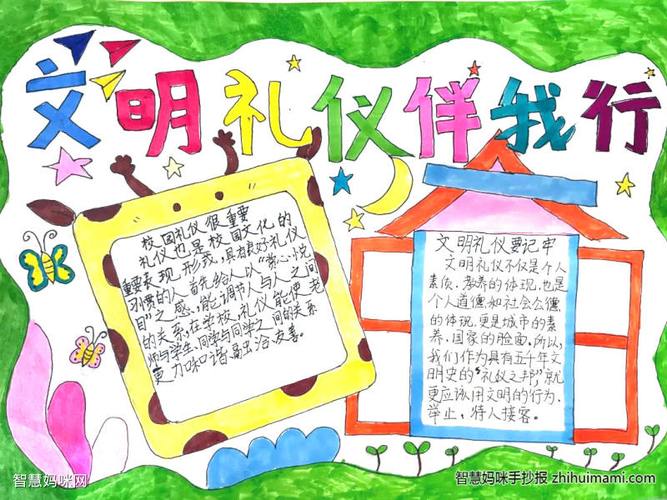 文明礼仪伴我行
校园礼仪很重要
礼仪也是校园文化的
重要表现形我,具有良好礼仪
习惯的人首先给人以“赏心悦
目”之感,能调节人与人之间
的关系.在学校,礼仪能使老
师与学生,同学与同学之间的关系
更力咊谐
文明礼仪要记牢
文明礼仪不仅是个人
素质、教养的体现,也是
个人道德和社会公德
的体现.更是城市的素
养、国家的脸面.所以,
我们作为具有五千年文
明史的“礼仪之邦”,就
更应该用文明的行为.
举止,待人接客。
智慧妈咪网
智慧妈咪手抄报 zhihuimami.com